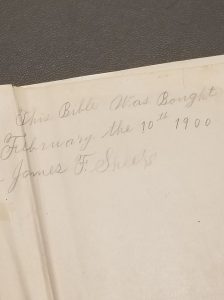 This Bible Was Bought
February the 10th 1900
James F. Sheets